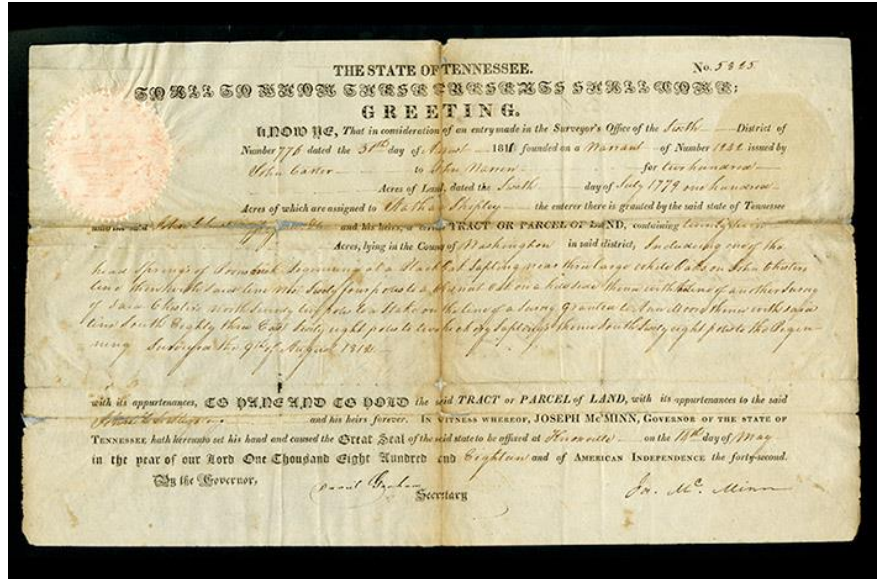 THE STATE OF TENNESSEE. No. 5325
TO ALL TO WHOM THESE PRESENTS SHALL COME:
GREETING.
KNOW YE, That in consideration of an entry made in the Surveyor's Office of the Sixth District of
Number 776 dated the day of August 181 founded on a Warrant of Number 1242 issued by
John Carter to John Warren for two hundred
Acres of Land, dated the Sixth day of July 1779 one hundred
Acres of which are assigned to Nathan Shipley the enterer there is granted by the said state of Tennessee
and his heirs, a certain TRACT OR PARCEL OF LAND, containing twenty seven
Acres, lying in the County of Washington in said district, Including one of the
head Springs of Beginning at a Black Oak Sapling near three large white Oaks on John Chesters
line thence with said line Sixty four poles to a on a hill side thence with of another Survey
of said Chesters north Seventy two poles to a Stake on the line of a Survey Granted to thence with said
line South Eighty three East Sixty eight poles to two hickory Saplings thence South Sixty eight poles to the Begin-
ning Surveyed the 9th of August 181
with its appurtenances, TO HAVE AND TO HOLD the said TRACT OR PARCEL of LAND, with its appurtenances to the said
and his heirs forever. IN WITNESS WHEREOF, JOSEPH McMINN, GOVERNOR OF THE STATE OF
TENNESSEE hath hereunto set his hand and caused the Great Seal of the said state to be affixed at Knoxville on the 18th day of May
in the year of our Lord One Thousand Eight Hundred and Eighteen and of AMERICAN INDEPENDENCE the forty-second.
By the Governor,
Daniel Graham Jo. McMinn
Secretary